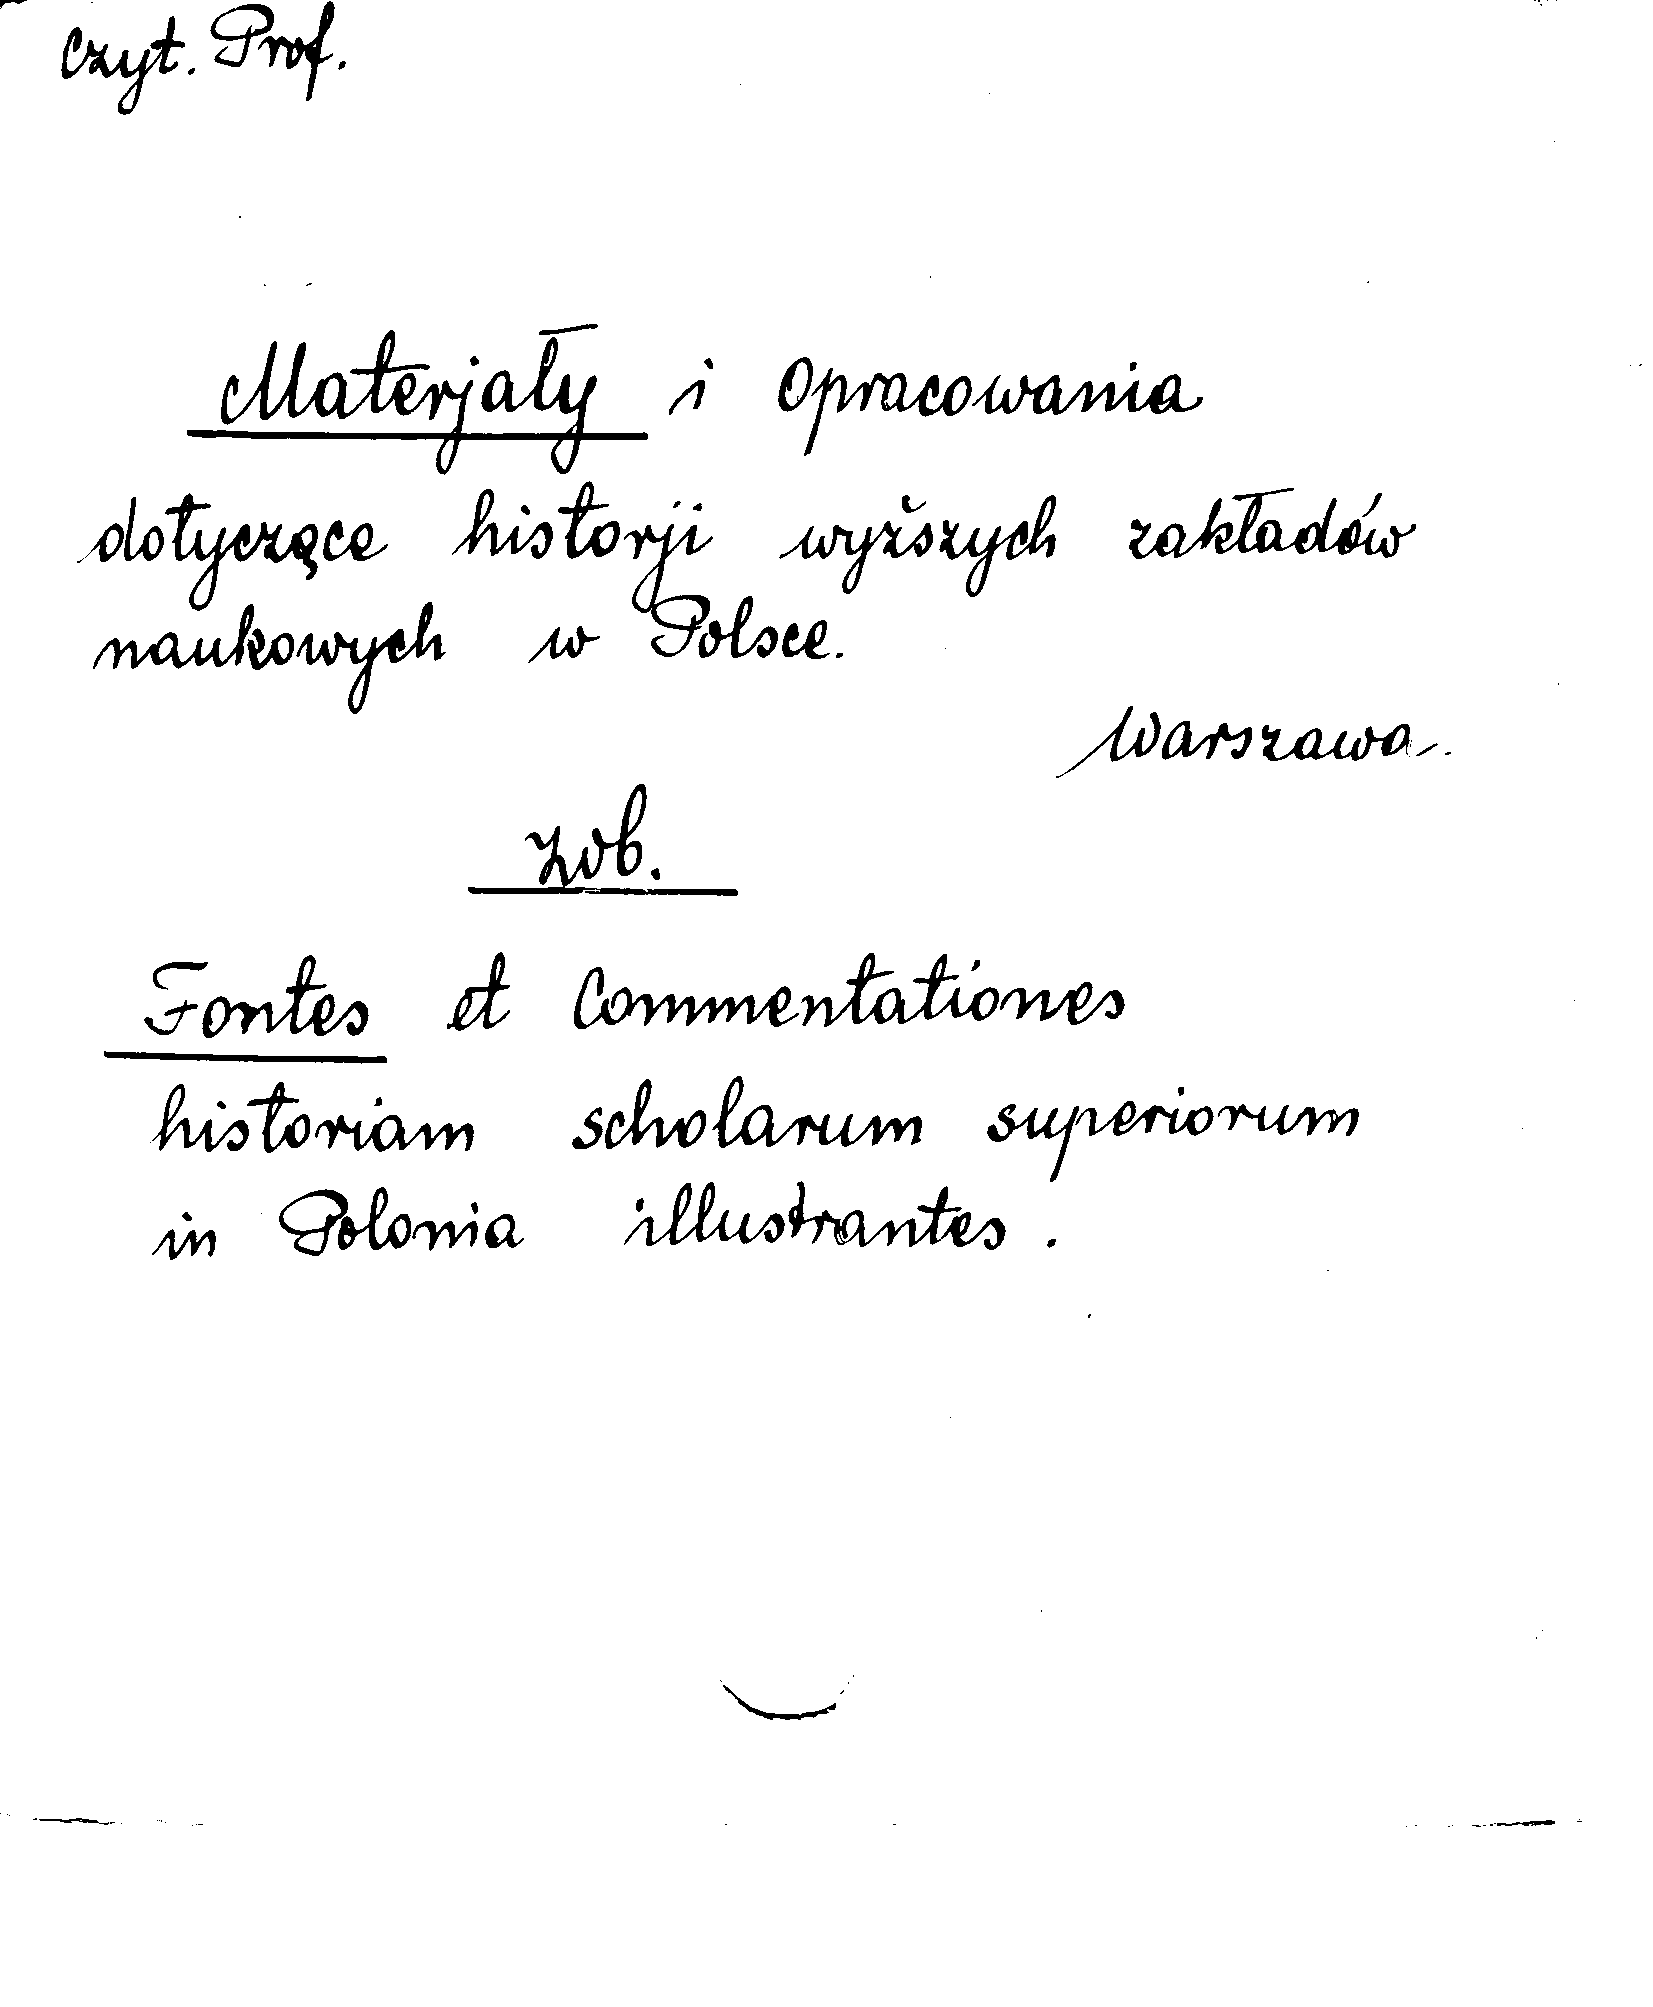 Czyt. Prof.
Materjały i opracowania
dotyczące historji wyższych zakładów
naukowych w Polsce.
Warszawa.
Zob.
Fontes et Commentationes
historiam scholarum superiorum
in Polonia illustrantes.